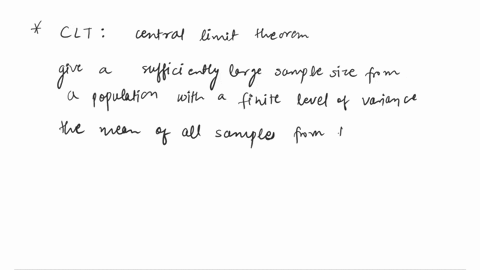 * CLT: central limit theorem
give a sufficiently large sample size from
a population with a finite level of variance
the mean of all samples from